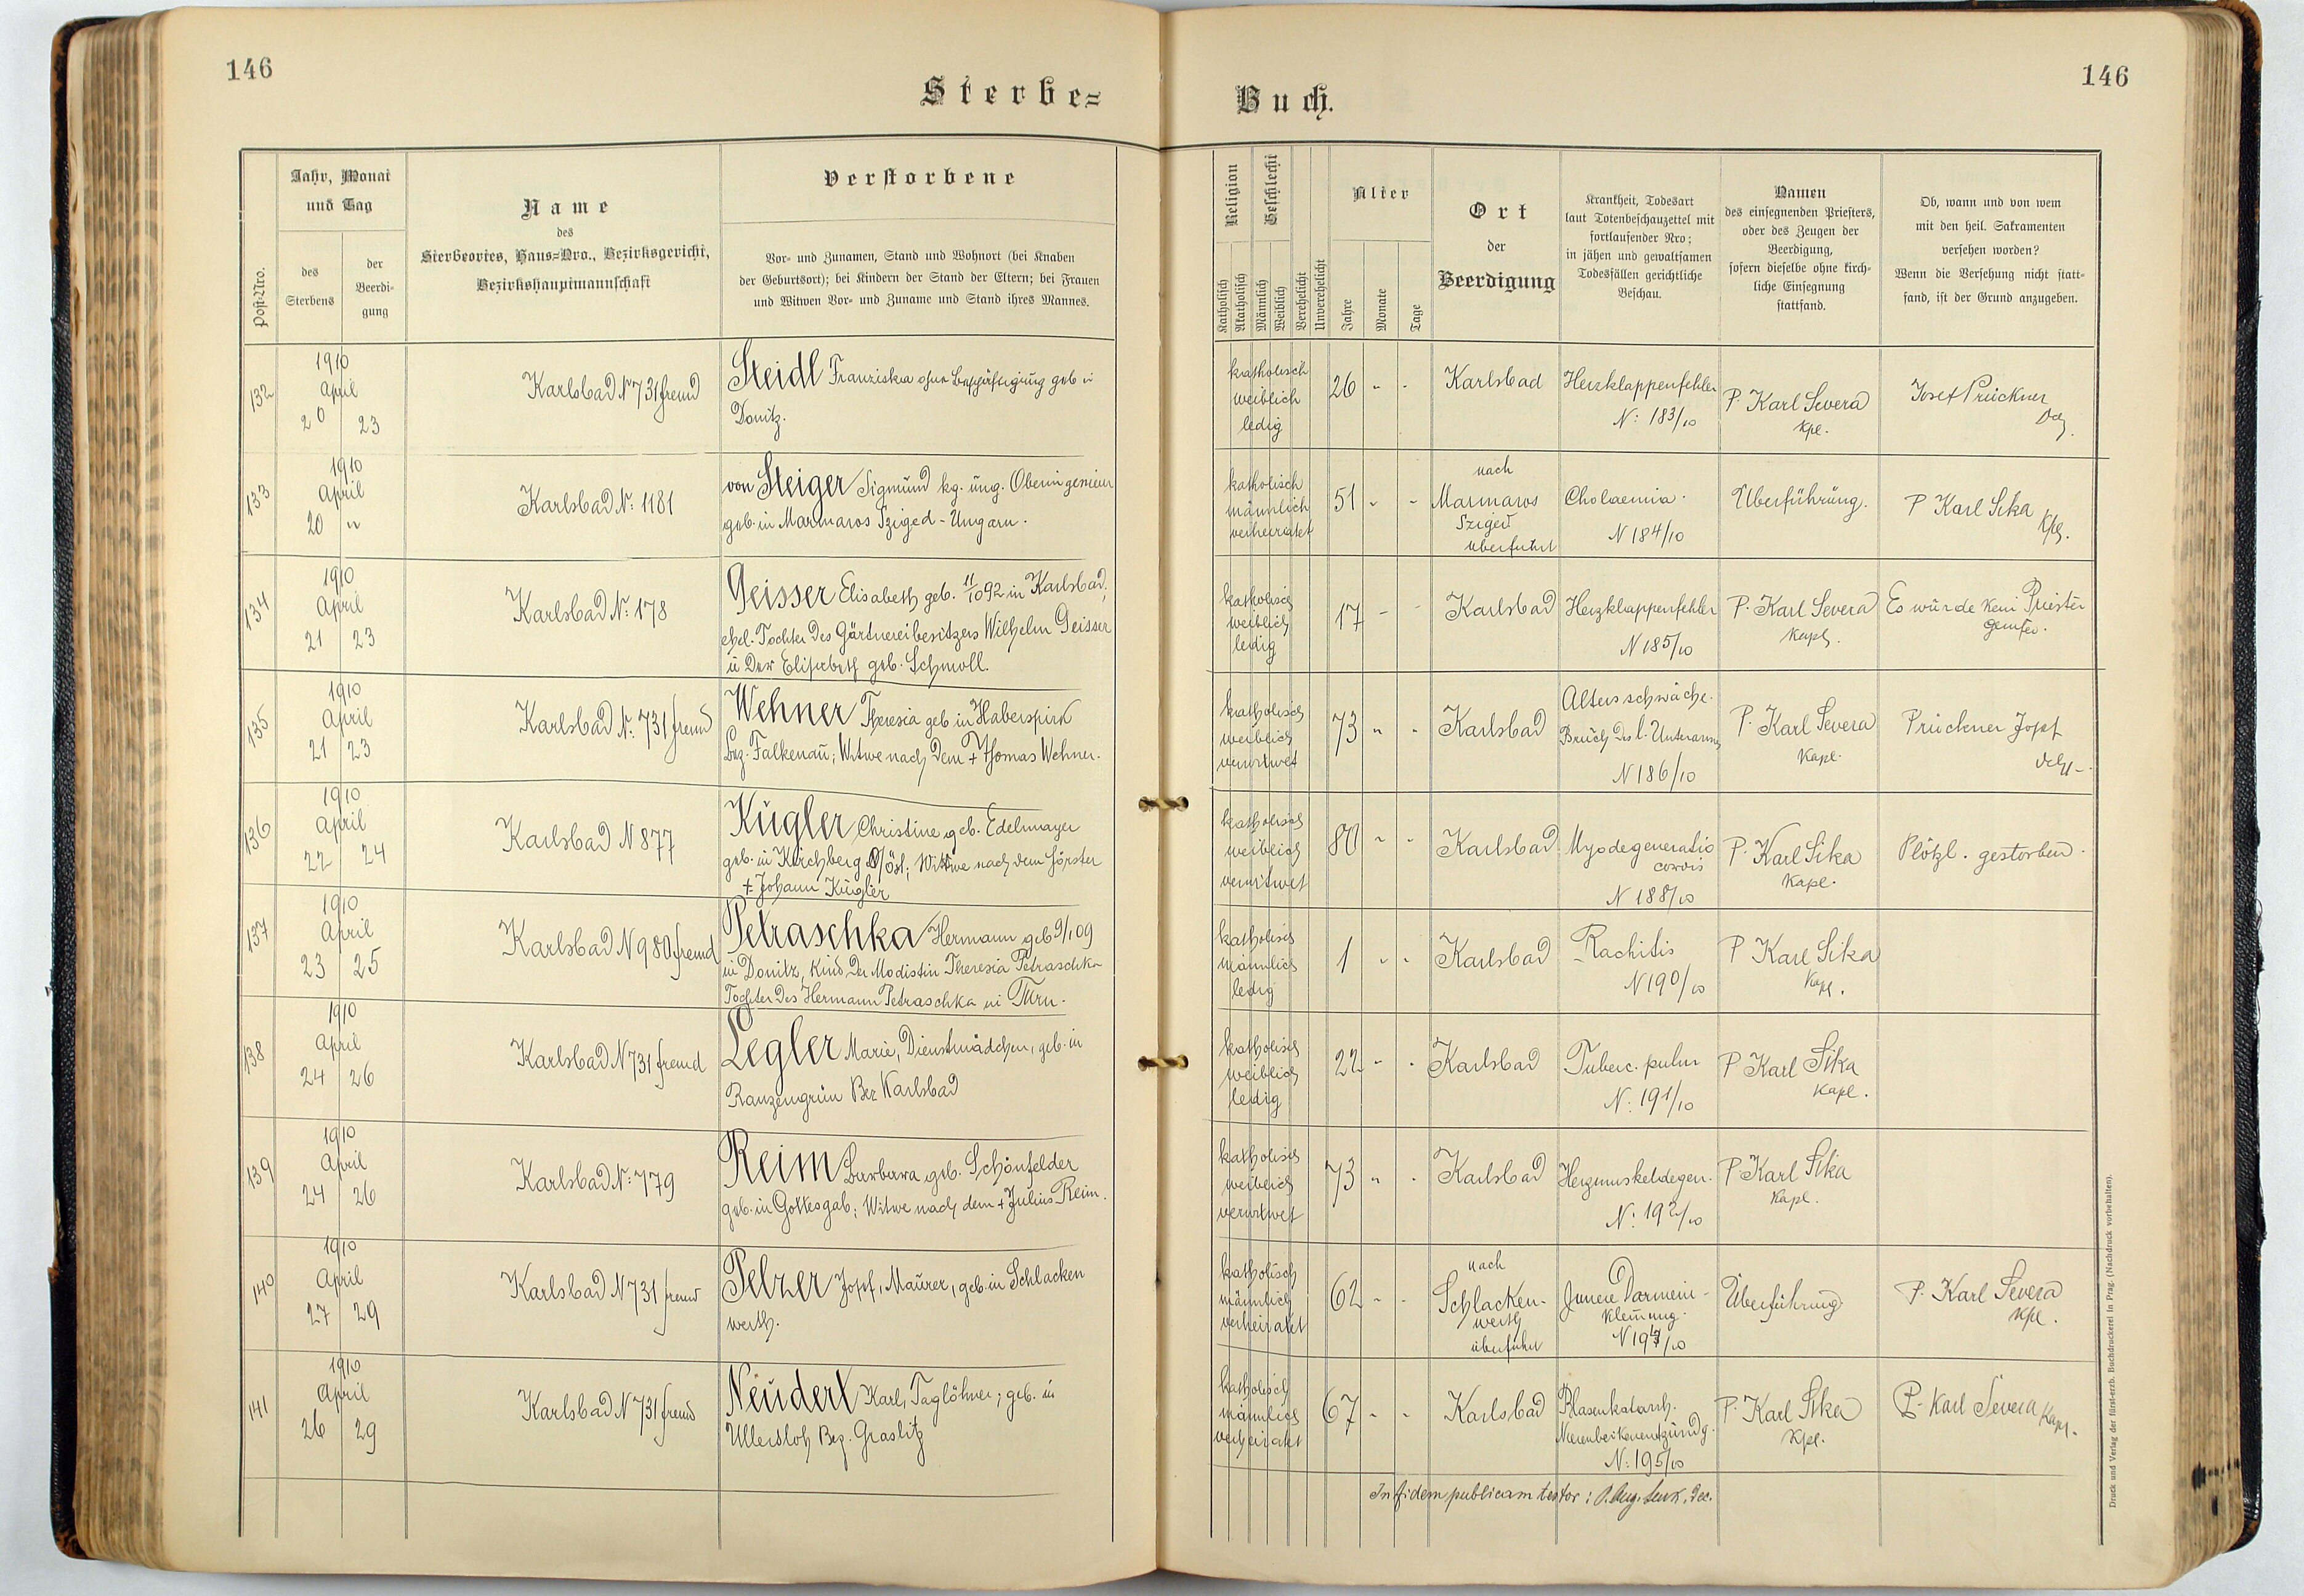 146
146
Sterbe=
Buch.
Post-Nro.
Jahr, Monat
und Tag
des
Sterbens
der
Beerdi-
gung
Name
des
Sterbeortes, Haus=Nro., Bezirksgericht,
Bezirkshauptmannschaft
Verstorbene
Vor- und Zunamen, Stand und Wohnort (bei Knaben
der Geburtsort); bei Kindern der Stand der Eltern; bei Frauen
und Witwen Vor- und Zuname und Stand ihres Mannes.
Religion
Geschlecht
Katholisch
Akatholisch
Männlich
Weiblich
Verehelicht
Unverehelicht
Alter
Jahre
Monate
Tage
Ort
der
Beerdigung
Krankheit, Todesart
laut Totenbeschauzettel mit
fortlaufender Nro;
in jähen und gewaltsamen
Todesfällen gerichtliche
Beschau.
Namen
des einsegnenden Priesters,
oder des Zeugen der
Beerdigung,
sofern dieselbe ohne kirch-
liche Einsegnung
stattfand.
Ob, wann und von wem
mit den heil. Sakramenten
versehen worden?
Wenn die Versehung nicht statt-
fand, ist der Grund anzugeben.
132
1910
April
20 23
Karlsbad No 731 fremd
Steidl Franziska ohne Beschäftigung geb in
Donitz.
katholisch
weiblich
ledig
26 - -
Karlsbad
Herzklappenfehler
N: 183/10
P. Karl Severa
Kpl.
Josef Prückner
133
1910
April
20 "
Karlsbad N: 1181
von Steiger Sigmund kg. ung. Oberingenieur
geb. in Marmaros Sziged - Ungarn.
katholisch
männlich
verheiratet
51 - -
nach
Marmaros
Sziged
überführt
Cholaemia.
N 184/10
Überführung.
P Karl Sika
Kpl.
134
1910
April
21 23
Karlsbad N: 178
Geisser Elisabeth geb. 11/10 92 in Karlsbad,
ehel. Tochter des Gärtnereibesitzers Wilhelm Geisser
u der Elisabeth geb. Schmoll.
katholisch
weiblich
ledig
17 - -
Karlsbad
Herzklappenfehler
N 185/10
P. Karl Severa
Kapl.
Es wurde kein Priester
gerufen.
135
1910
April
21 23
Karlsbad N: 731 fremd
Wehner Theresia geb in Haberspirk
Bez. Falkenau; Witwe nach dem + Thomas Wehner.
katholisch
weiblich
verwitwet
73 " -
Karlsbad
Altersschwäche.
Bruch des l. Unterarms
N 186/10
P. Karl Severa
Kapl.
Prückner Josef
136
1910
April
22 24
Karlsbad N 877
Kugler Christine geb. Edelmayer
geb. in Kirchberg O/öst.; Witwe nach dem Förster
+ Johann Kugler
katholisch
weiblich
verwitwet
80 - -
Karlsbad
Myodegeneratio
cordis
N 188/10
P. Karl Sika
Kapl.
Plötzl. gestorben.
137
1910
April
23 25
Karlsbad N 980 fremd
Petraschka Hermann geb 9/1 09
in Donitz, Kind der Modistin Theresia Petraschka
Tochter des Hermann Petraschka in Turn.
katholisch
männlich
ledig
1 - -
Karlsbad
Rachitis
N 190/10
P Karl Sika
Kapl.
138
1910
April
24 26
Karlsbad N 731 fremd
Legler Marie, Dienstmädchen, geb. in
Ranzengrün Bez Karlsbad
katholisch
weiblich
ledig
22 - -
Karlsbad
Tuberc. pulm
N: 191/10
P Karl Sika
Kapl.
139
1910
April
24 26
Karlsbad N: 779
Reim Barbara geb. Schönfelder
geb. in Gottesgab; Witwe nach dem + Julius Reim.
katholisch
weiblich
verwitwet
73 " -
Karlsbad
Herzmuskeldegen.
N: 192/10
P Karl Sika
Kapl.
140
1910
April
27 29
Karlsbad N 731 fremd
Pelzer Josef, Maurer, geb. in Schlacken
werth.
katholisch
männlich
verheiratet
62 - -
nach
Schlacken-
werth
überführt
Innere Darmein-
klemung.
Überführung
P. Karl Severa
Kpl.
141
1910
April
26 29
Karlsbad N 731 fremd
Neudert Karl, Taglöhner; geb. in
Ullersloh Bez. Graslitz
katholisch
männlich
verheiratet
67 - -
Karlsbad
Blasenkatarrh.
Nierenbeckenentzündg.
N: 195/10
P. Karl Sika
Kpl.
P. Karl Severa Kapl.
In fidem publicam testor:
Druck und Verlag der fürst-erzb. Buchdruckerei in Prag. (Nachdruck vorbehalten).